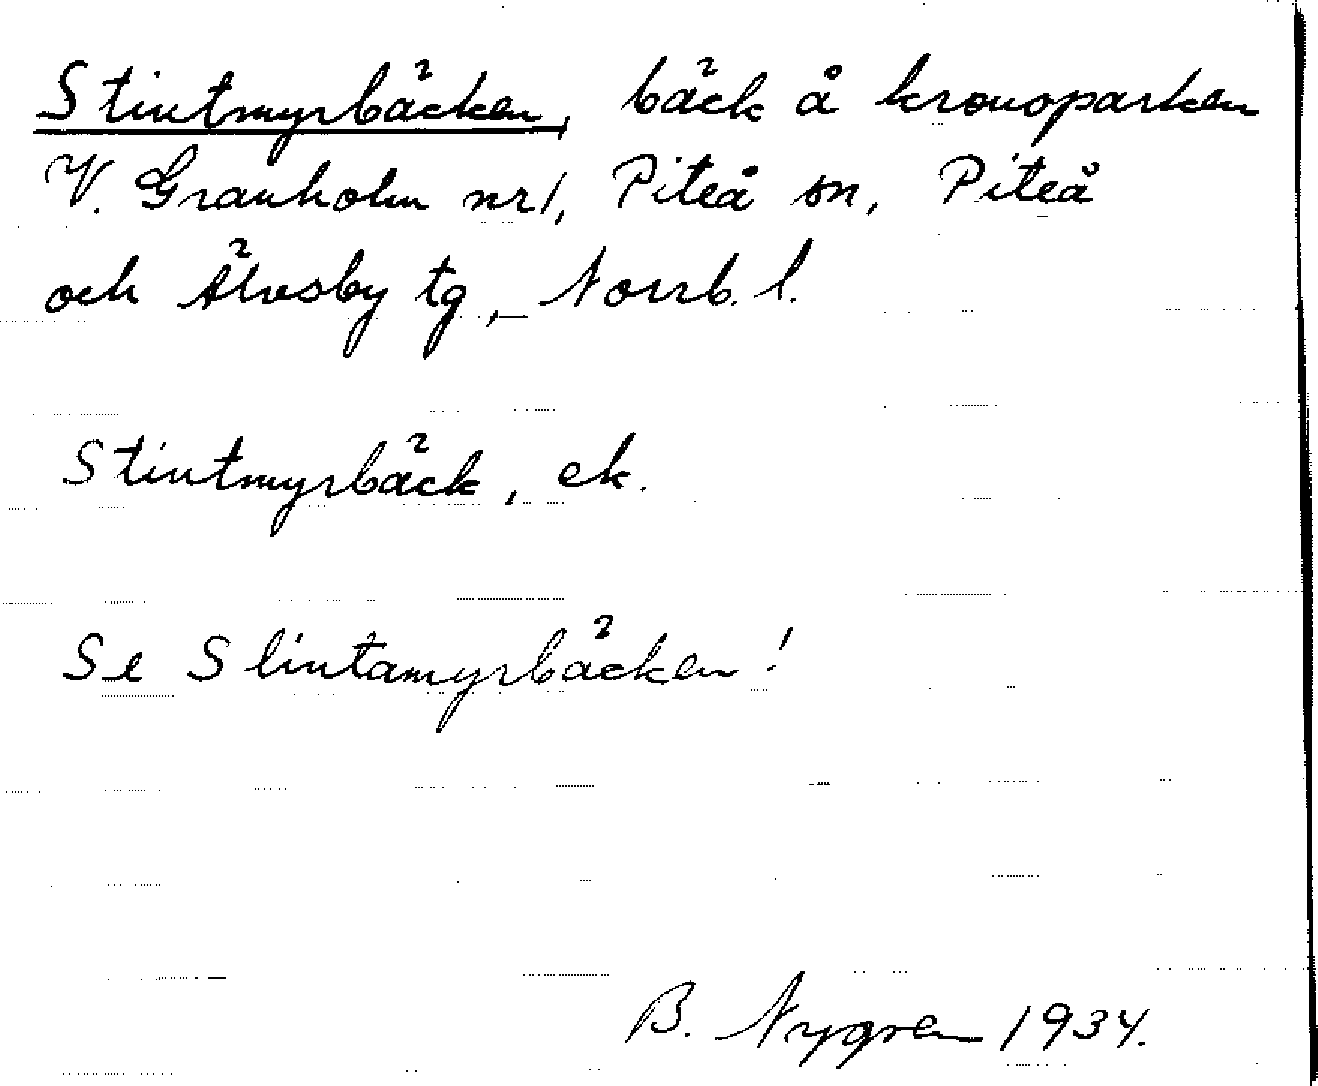 Stintmyrbäcken, bäck å kronoparken
V. Granholm nr 1, Piteå sn, Piteå
och Älvsby tg, Norrb. l.
Stintmyrbäck, ek.
Se Slintamyrbäcken!
B. Nygren 1934.